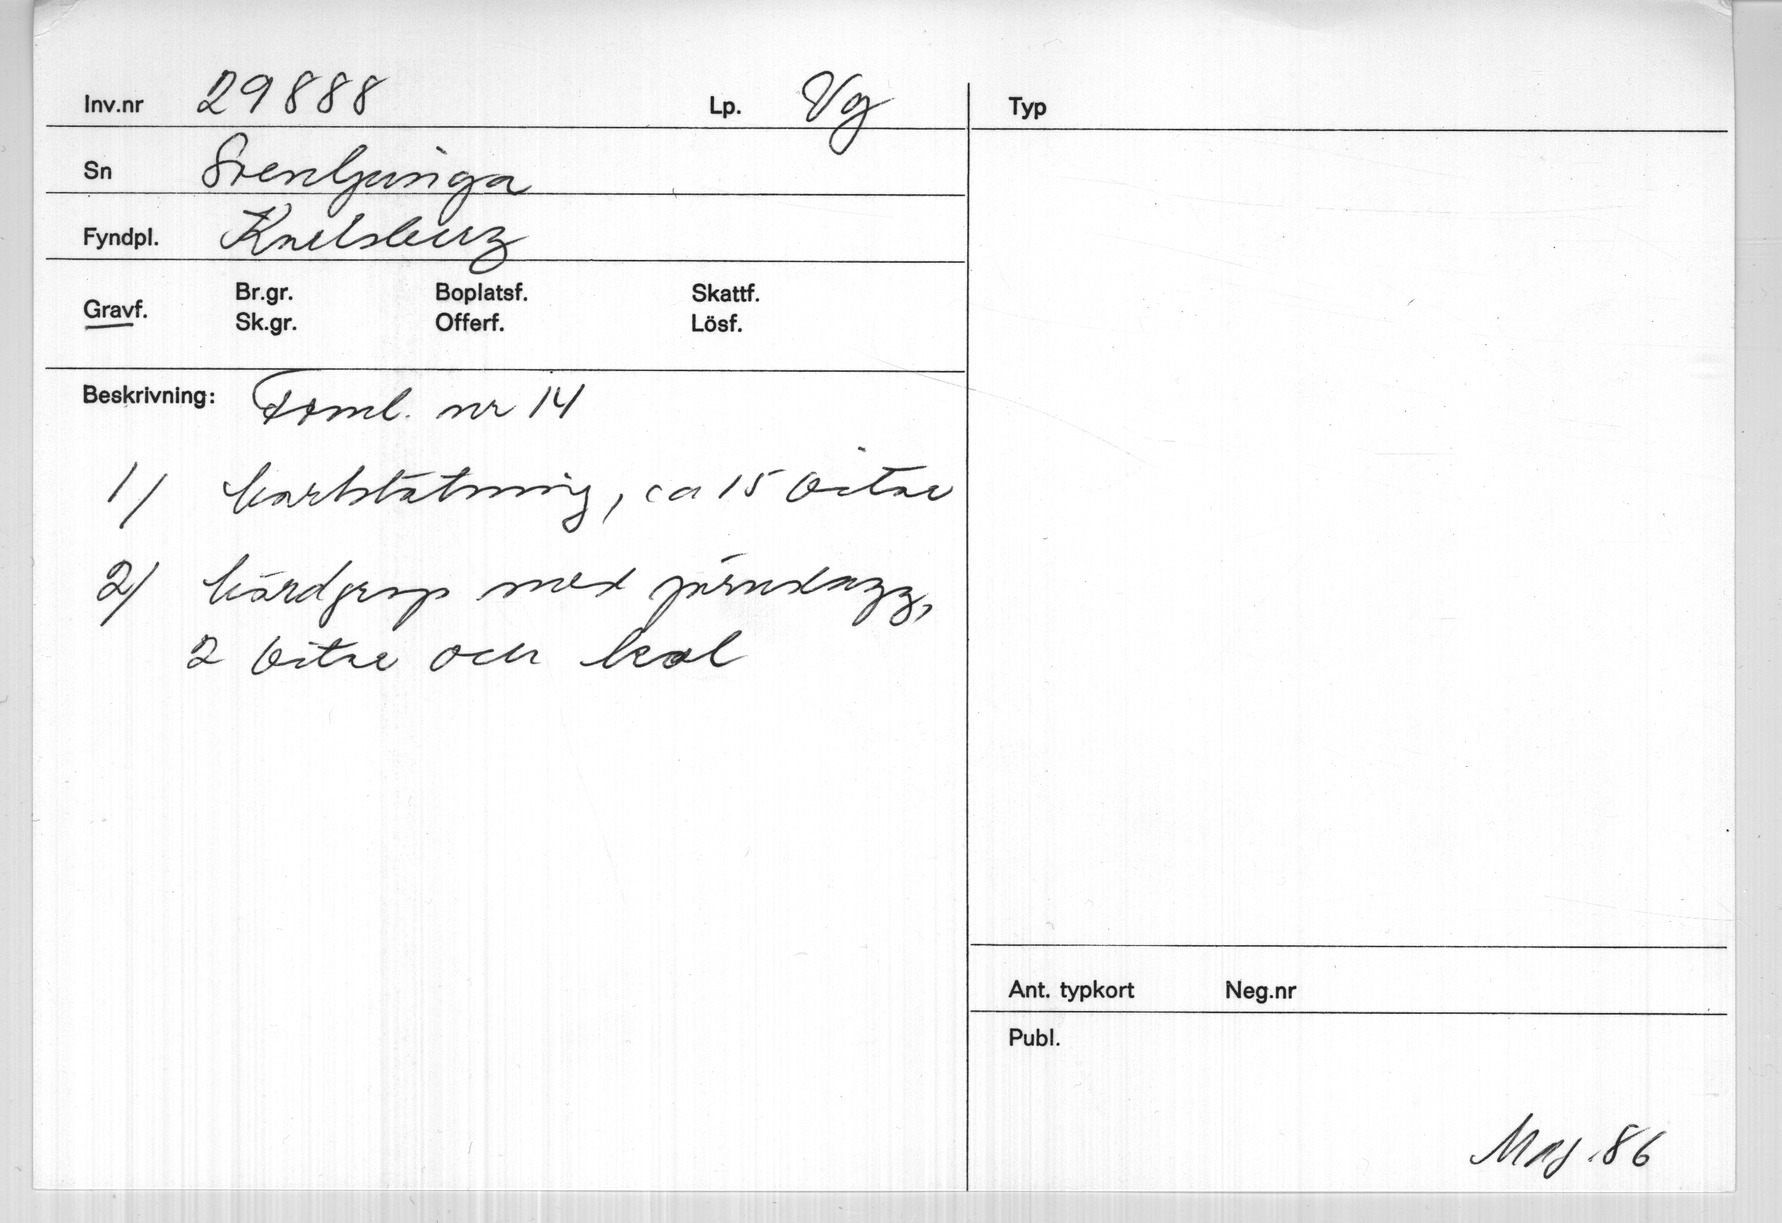 Inv.nr 29888 Lp. Vg
Sn Svenljunga
Fyndpl. Knelsberg
Gravf. Br.gr. Boplatsf. Skattf.
Sk.gr. Offerf. Lösf.
Beskrivning: Forml. nr 14
1/ hartstätning, ca 15 bitar
2/ härdgrop med järnslagg,
2 bitar och kol
Typ
Ant. typkort Neg.nr
Publ.
Maj .86